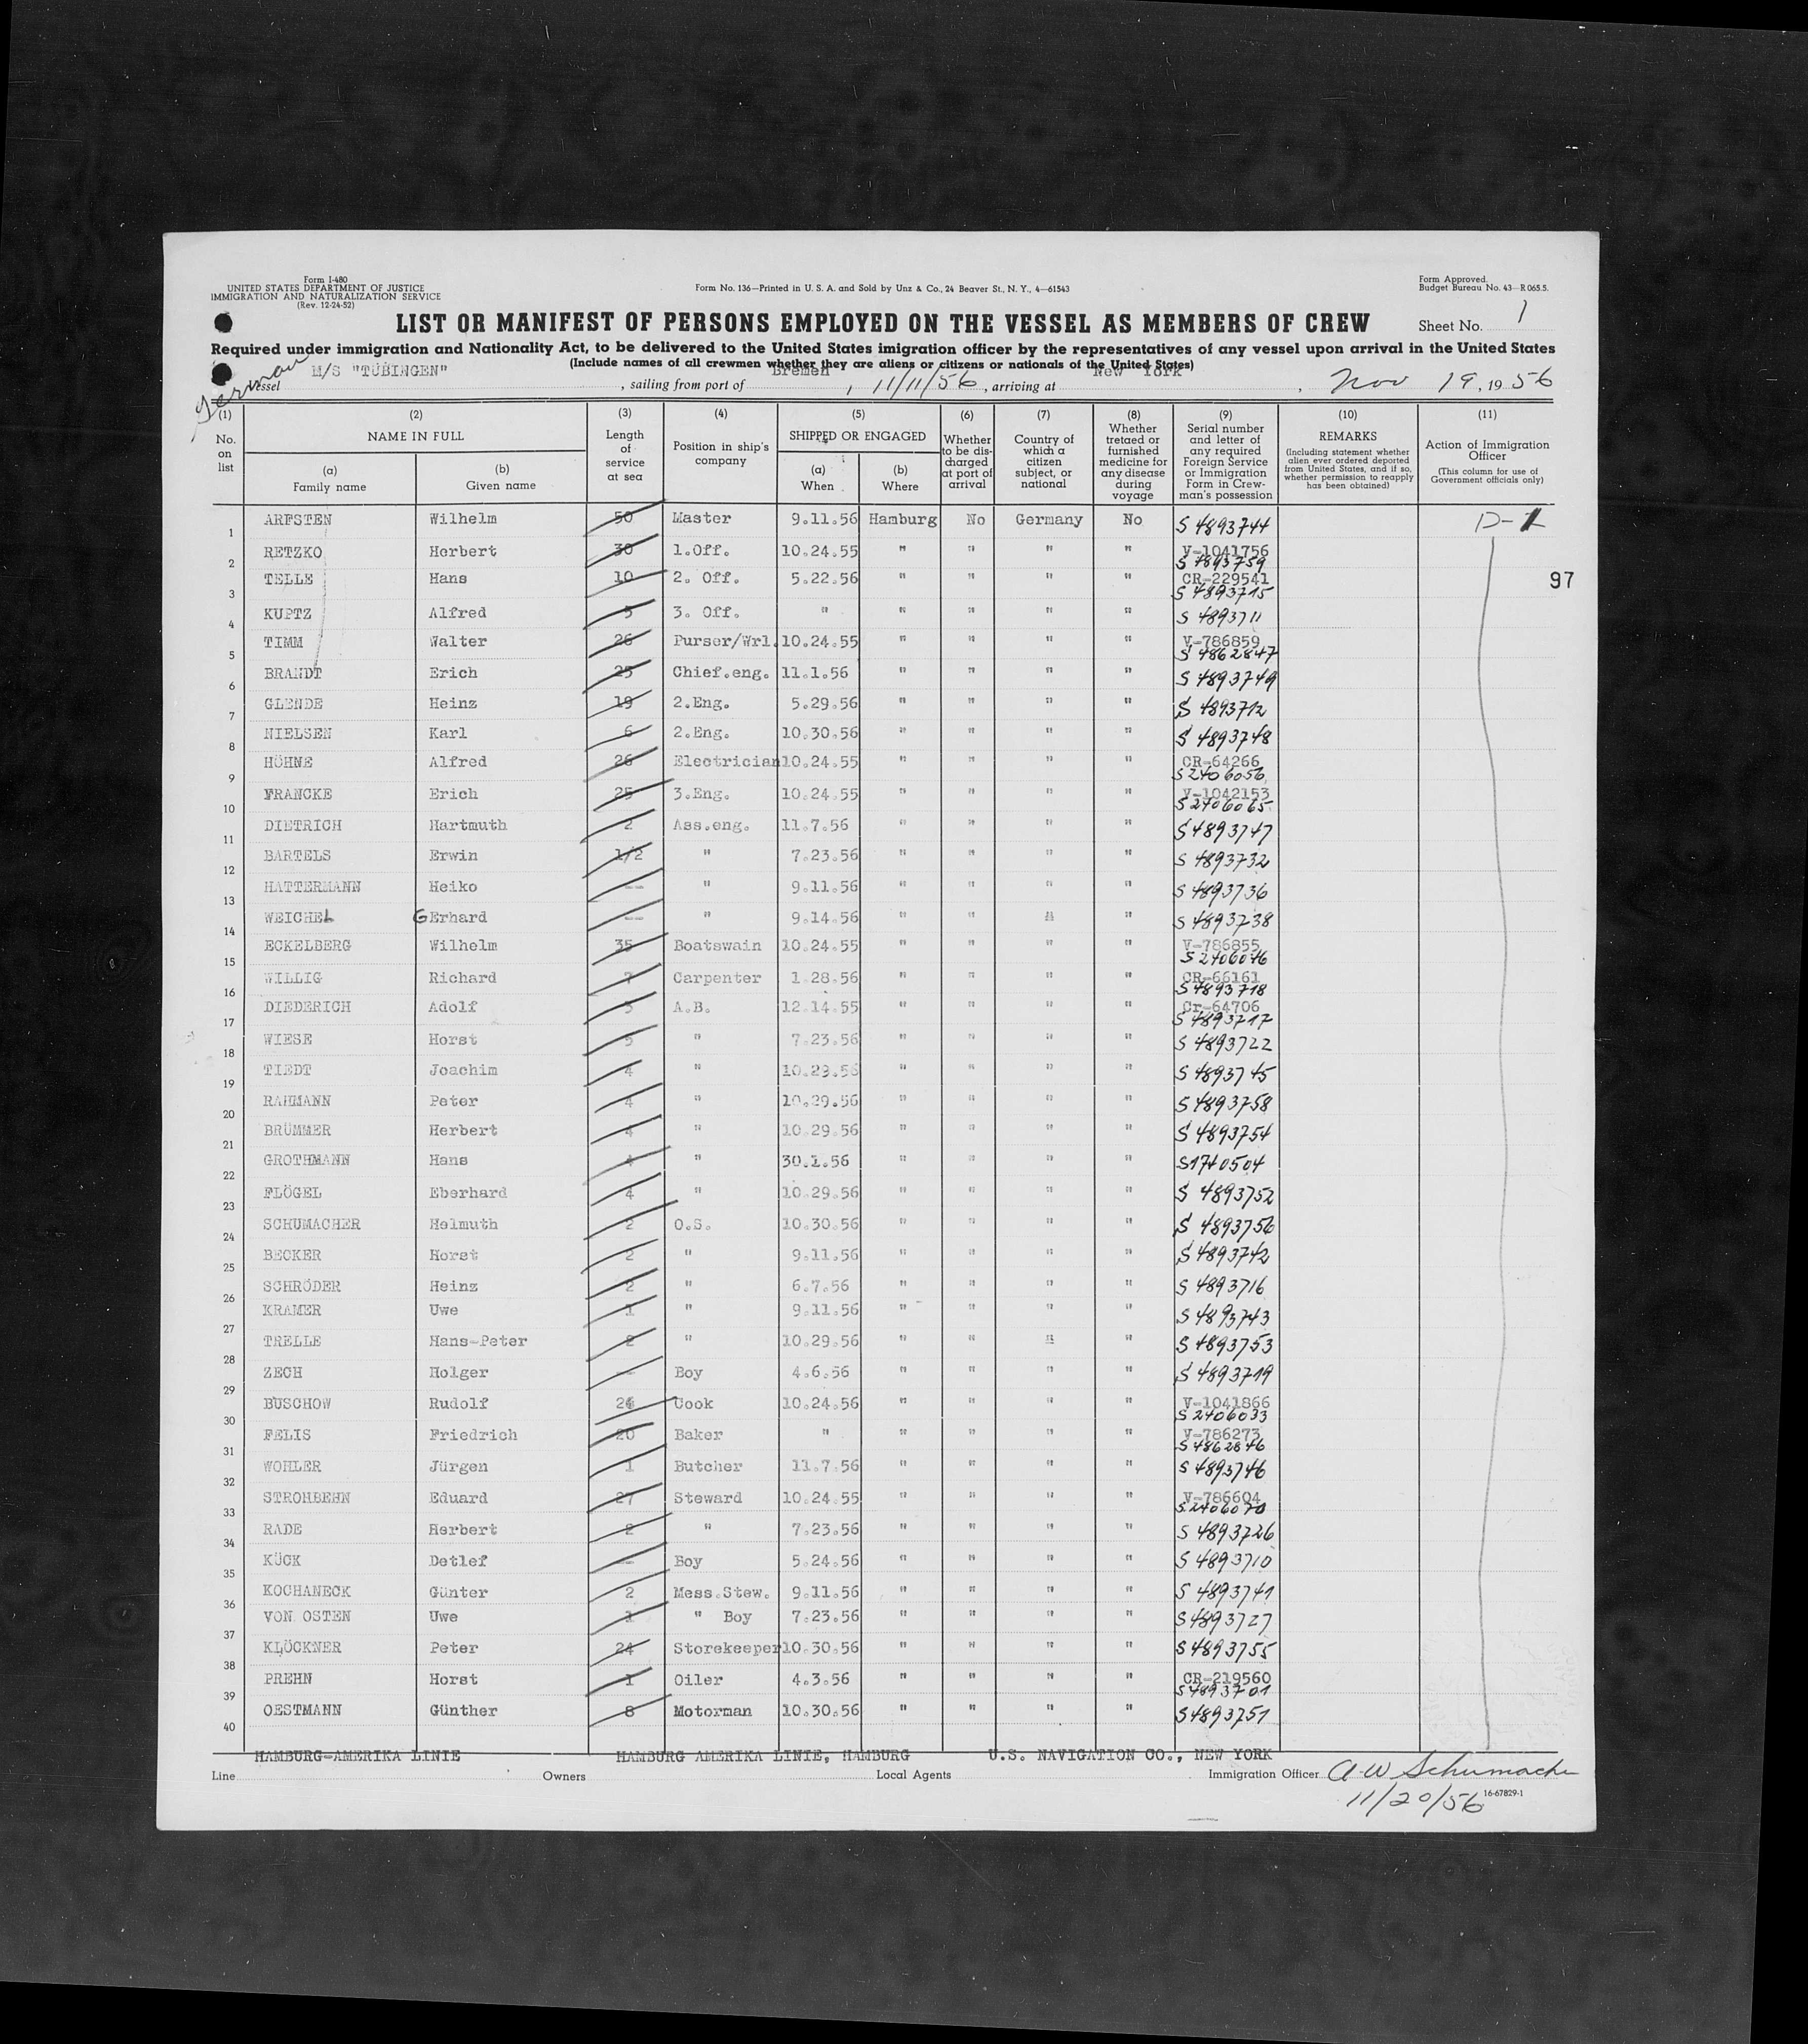 Form I-480
UNITED STATES DEPARTMENT OF JUSTICE
IMMIGRATION AND NATURALIZATION SERVICE
(Rev. 12-24-52)
Form No. 136—Printed in U. S. A. and Sold by Unz & Co., 24 Beaver St., N. Y., 4—61543
Form Approved.
Budget Bureau No. 43—R065.5.
LIST OR MANIFEST OF PERSONS EMPLOYED ON THE VESSEL AS MEMBERS OF CREW
Sheet No. 1
Required under immigration and Nationality Act, to be delivered to the United States imigration officer by the representatives of any vessel upon arrival in the United States
(Include names of all crewmen whether they are aliens or citizens or nationals of the United States)
German
Vessel M/S "TÜBINGEN", sailing from port of Bremen, 11/11/56, arriving at New York, Nov 19, 1956
(1) (2) (3) (4) (5) (6) (7) (8) (9) (10) (11)
No. on list
NAME IN FULL
(a) Family name
(b) Given name
Length of service at sea
Position in ship's company
SHIPPED OR ENGAGED
(a) When
(b) Where
Whether to be discharged at port of arrival
Country of which a citizen subject, or national
Whether tretaed or furnished medicine for any disease during voyage
Serial number and letter of any required Foreign Service or Immigration Form in Crewman's possession
REMARKS
(Including statement whether alien ever ordered deported from United States, and if so, whether permission to reapply has been obtained)
Action of Immigration Officer
(This column for use of Government officials only)
1 ARFSTEN Wilhelm 50 Master 9.11.56 Hamburg No Germany No S 4893744 D-1
2 RETZKO Herbert 30 1.Off. 10.24.55 " " " " V-1041756 S 4893759
3 TELLE Hans 10 2. Off. 5.22.56 " " " " CR-229541 S 4893715
97
4 KUPTZ Alfred 5 3. Off. " " " " " S 4893711
5 TIMM Walter 26 Purser/Wrl. 10.24.55 " " " " V-786859 S 4862847
6 BRANDT Erich 25 Chief.eng. 11.1.56 " " " " S 4893749
7 GLENDE Heinz 19 2.Eng. 5.29.56 " " " " S 4893712
8 NIELSEN Karl 6 2.Eng. 10.30.56 " " " " S 4893748
9 HÖHNE Alfred 26 Electrician 10.24.55 " " " " CR-64266 S 2406056
10 FRANCKE Erich 25 3.Eng. 10.24.55 " " " " V-1042153 S 2406065
11 DIETRICH Hartmuth 2 Ass.eng. 11.7.56 " " " " S 4893747
12 BARTELS Erwin 1/2 " 7.23.56 " " " " S 4893732
13 HATTERMANN Heiko -- " 9.11.56 " " " " S 4893736
14 WEICHEL GErhard -- " 9.14.56 " " " " S 4893738
15 ECKELBERG Wilhelm 35 Boatswain 10.24.55 " " " " V-786855 S 2406046
16 WILLIG Richard 7 Carpenter 1.28.56 " " " " CR-66161 S 4893718
17 DIEDERICH Adolf 5 A.B. 12.14.55 " " " " Cr-64706 S 4893717
18 WIESE Horst 5 " 7.23.56 " " " " S 4893722
19 TIEDT Joachim 4 " 10.23.56 " " " " S 4893745
20 RAHMANN Peter 4 " 10.29.56 " " " " S 4893758
21 BRÜMMER Herbert 4 " 10.29.56 " " " " S 4893754
22 GROTHMANN Hans 4 " 30.1.56 " " " " S1740504
23 FLÖGEL Eberhard 4 " 10.29.56 " " " " S 4893752
24 SCHUMACHER Helmuth 2 O.S. 10.30.56 " " " " S 4893756
25 BECKER Horst 2 " 9.11.56 " " " " S 4893742
26 SCHRÖDER Heinz 2 " 6.7.56 " " " " S 4893716
27 KRAMER Uwe 1 " 9.11.56 " " " " S 4893743
28 TRELLE Hans-Peter 2 " 10.29.56 " " " " S 4893753
29 ZECH Holger - Boy 4.6.56 " " " " S 4893719
30 BUSCHOW Rudolf 26 Cook 10.24.56 " " " " V-1041866 S 2406033
31 FELIS Friedrich 20 Baker " " " " " V-786273 S 4862846
32 WOHLER Jürgen 1 Butcher 11.7.56 " " " " S 4893746
33 STROHBEHN Eduard 27 Steward 10.24.55 " " " " V-786604 S 2406070
34 RADE Herbert 2 " 7.23.56 " " " " S 4893726
35 KÜCK Detlef - Boy 5.24.56 " " " " S 4893710
36 KOCHANECK Günter 2 Mess.Stew. 9.11.56 " " " " S 4893741
37 VON OSTEN Uwe 1 " Boy 7.23.56 " " " " S 4893727
38 KLÖCKNER Peter 24 Storekeeper 10.30.56 " " " " S 4893755
39 PREHN Horst 1 Oiler 4.3.56 " " " " CR-219560 S 4893701
40 OESTMANN Günther 8 Motorman 10.30.56 " " " " S 4893751
HAMBURG-AMERIKA LINIE HAMBURG AMERIKA LINIE, HAMBURG U.S. NAVIGATION CO., NEW YORK
Line Owners Local Agents Immigration Officer A W Schumacher
11/20/56 16-67829-1